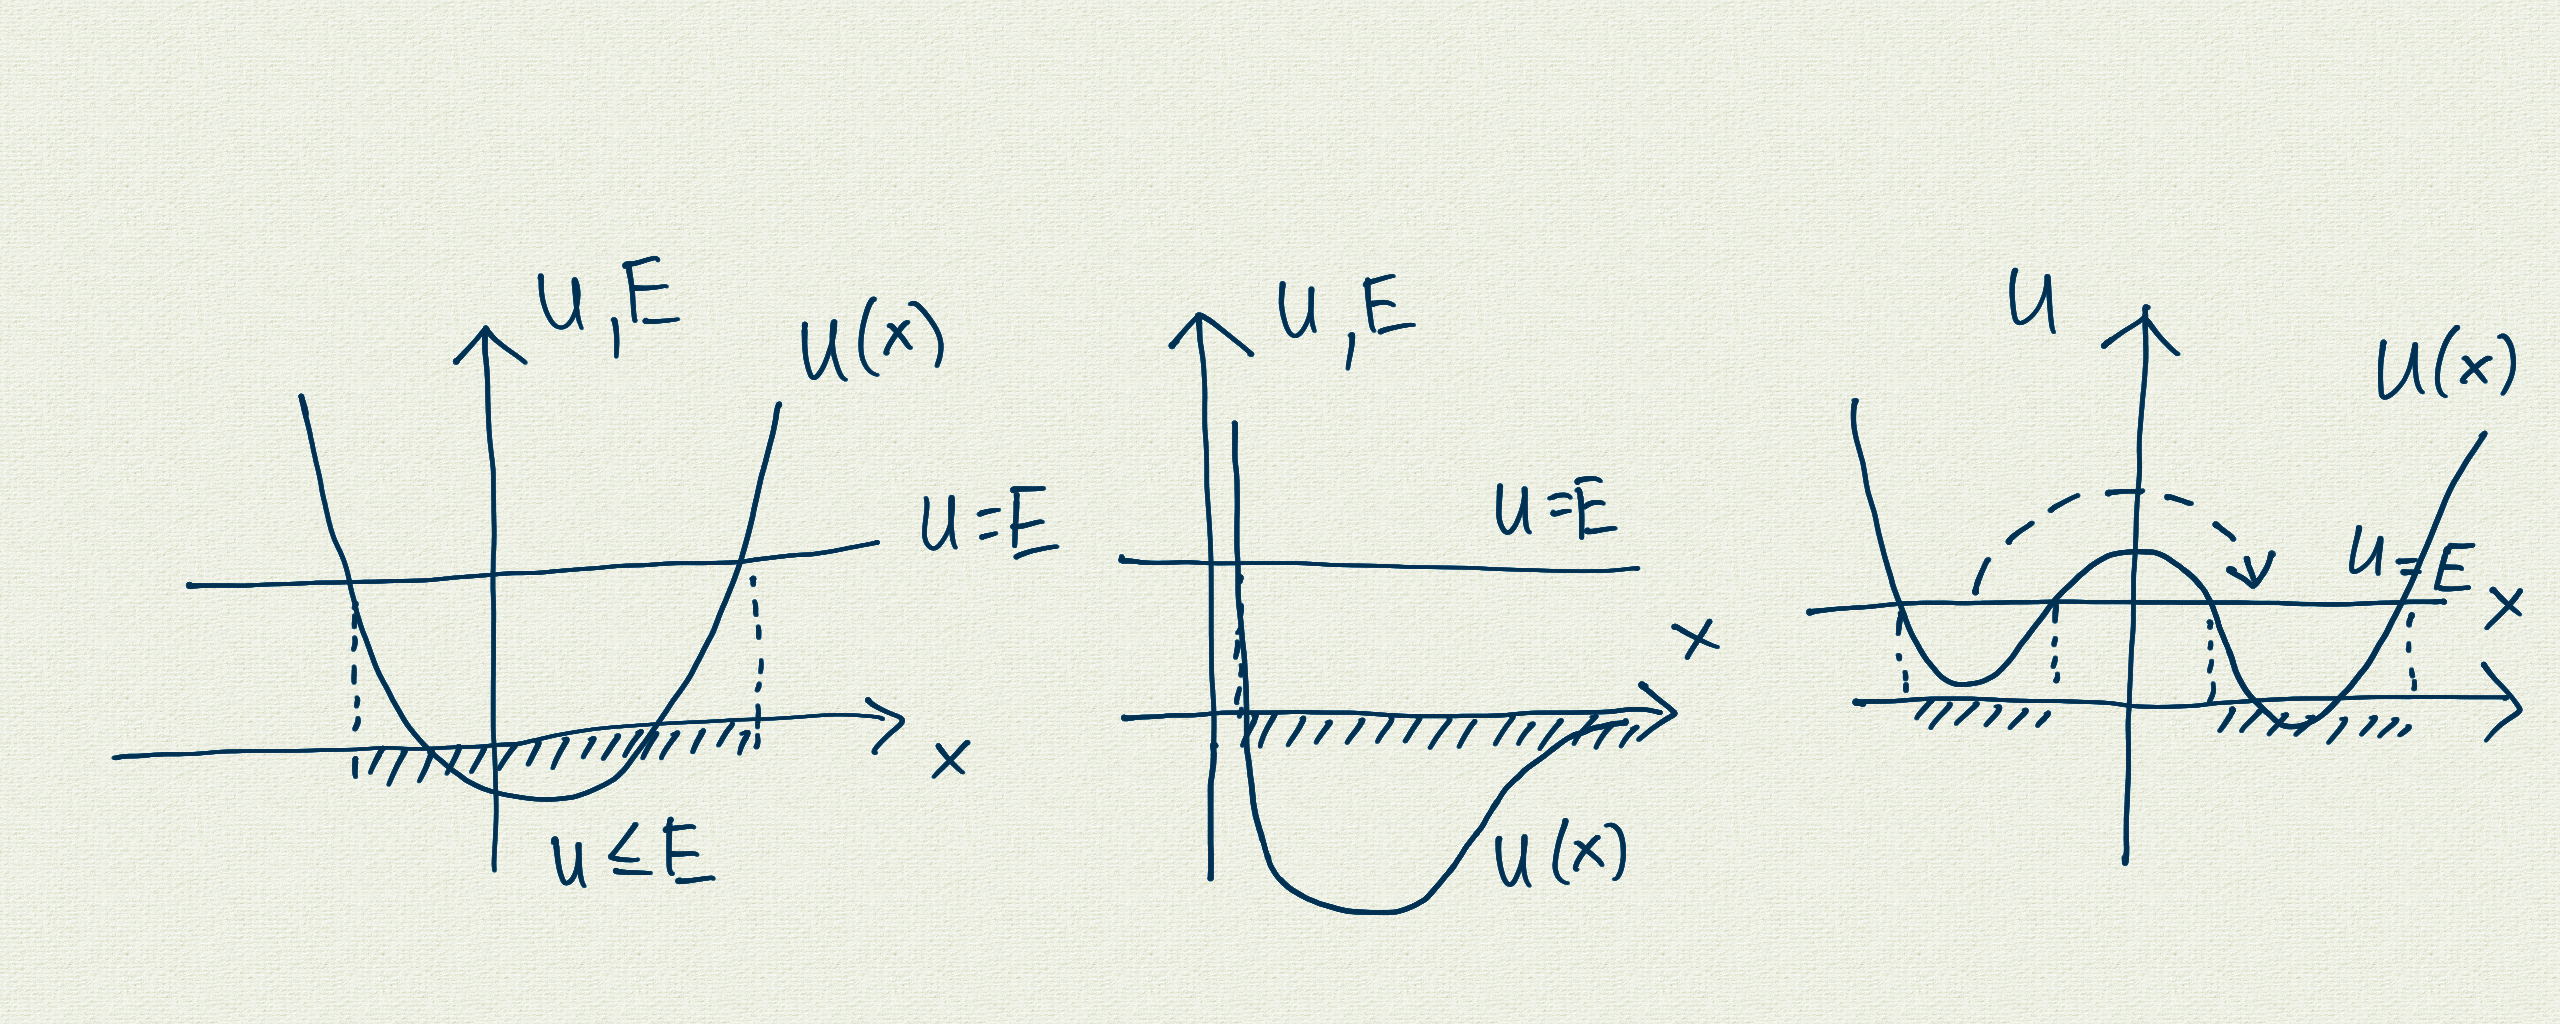 U,E
U(x)
U=E
x
U≤E
U,E
U=E
x
U(x)
U
U(x)
U=E
x